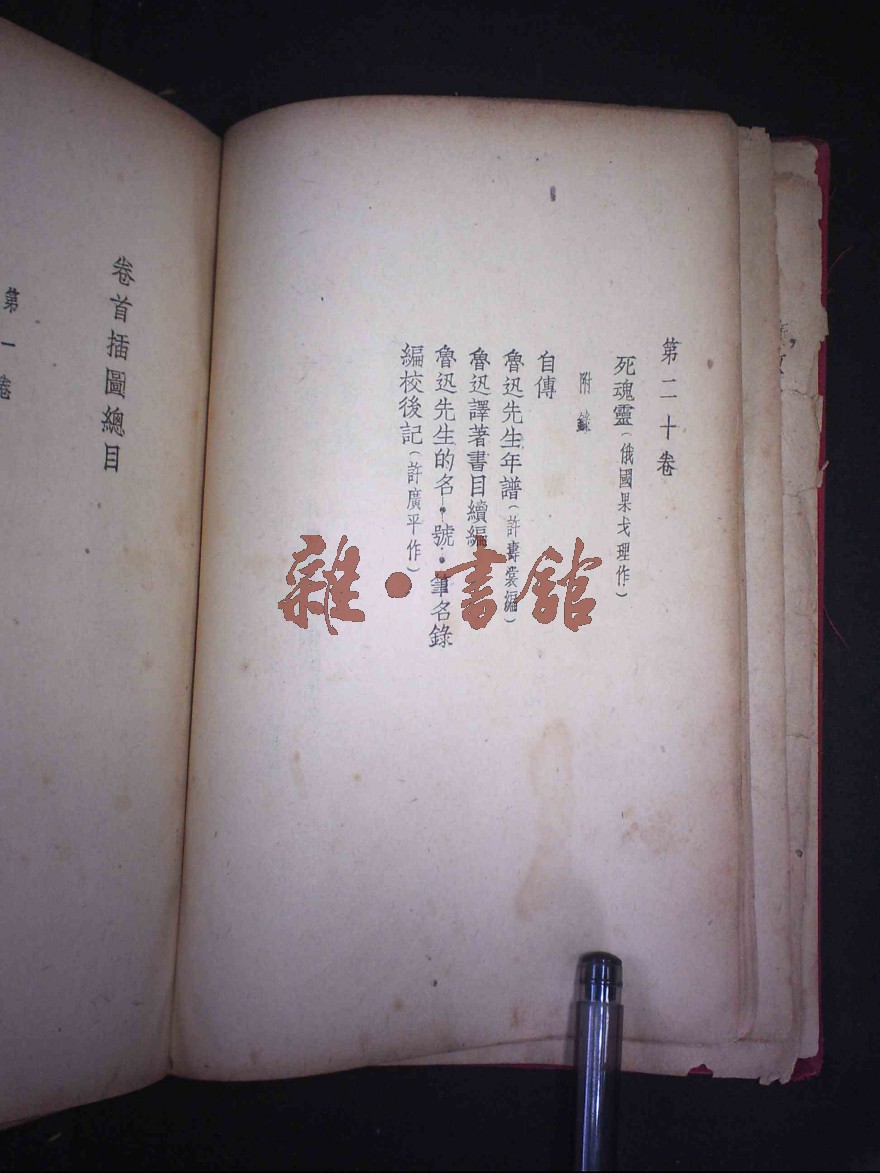 第二十卷
死魂靈(俄國果戈理作)
附錄
自傳
魯迅先生年譜(許壽裳編)
魯迅譯著書目續編
魯迅先生的名·號·筆名錄
編校後記(許廣平作)
卷首插圖總目
第一卷
雜·書館